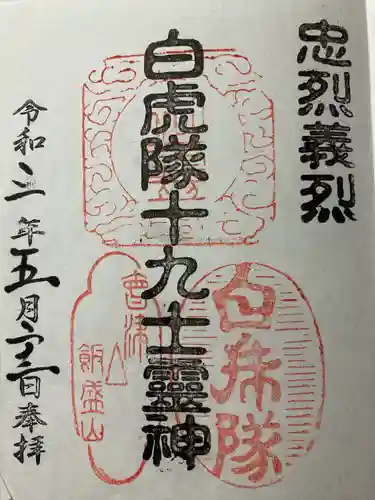 忠烈義烈
白虎隊十九士霊神
會津
飯盛山
白虎隊
令和二年五月二十二日奉拝